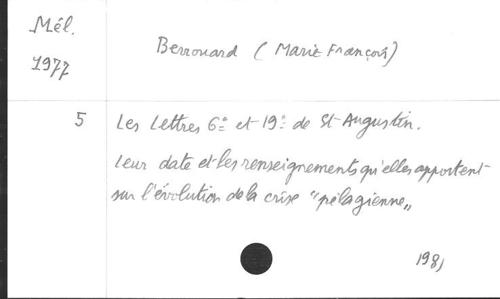 Mél.
1977
Berrouard (Marie François)
5
Les Lettres 6e et 19e de St-Augustin.
Leur date et les renseignements qu'elles apportent
sur l'évolution de la crise "pélagienne"
1981